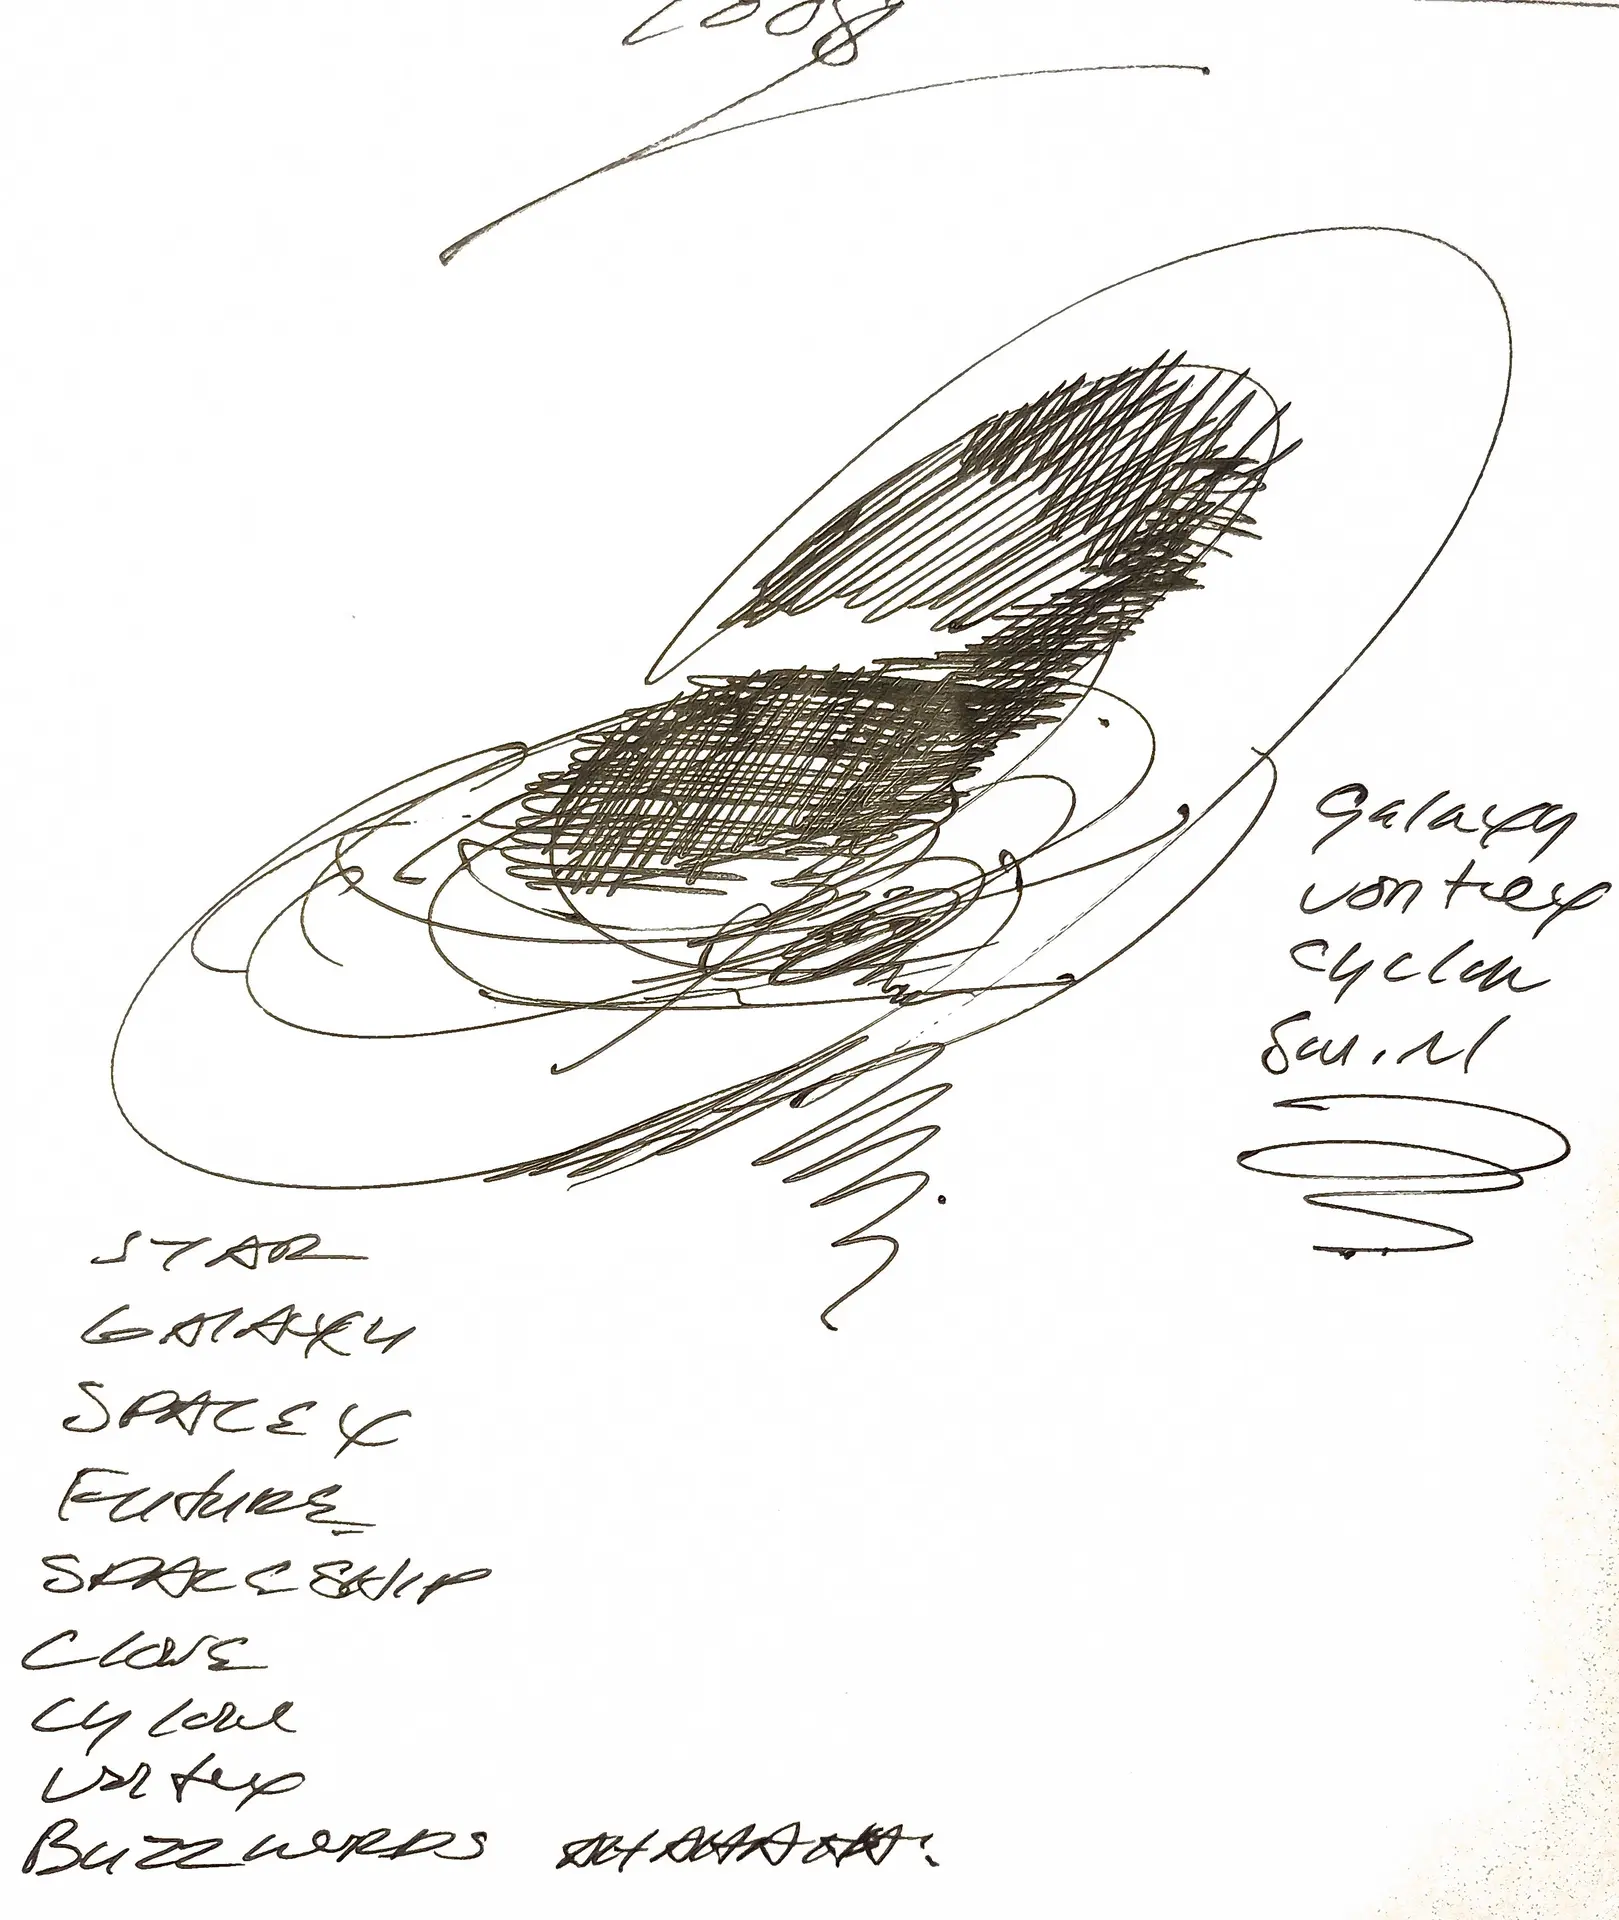 2008
Galaxy
vortex
cyclon
Swirl
STAR
GALAXY
SPACEY
FUTURE
SPACESHIP
CLONE
Cylone
vortex
BUZZWORDS AHAHAHAHA!